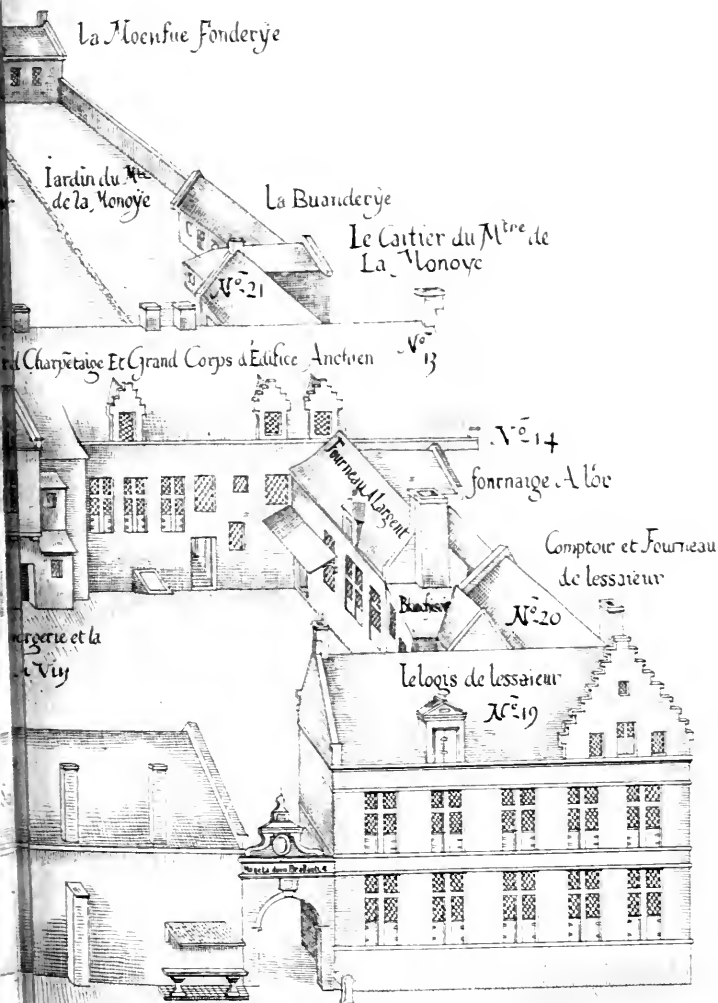 La Moenfue Fonderÿe
Iardin du Mtre
de la Monoÿe
La Buanderÿe
Le Cartier du Mtre de
La Monoye
No 21
No 13
rd Charpētaige Et Grand Corps d'Édifice Anchien
No 14
Fourneau A Largent
fournaige A lor
Comptoir et Fourneau
de lessaieur
Blanchisoir
No 20
ergerie et la
Vis
le logis de lessaieur
No 19